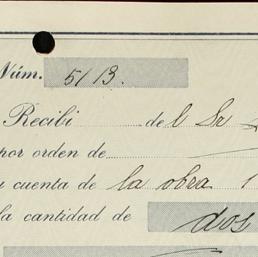 Núm. 513.
Recibí de l Sr
por orden de
y cuenta de la obra
la cantidad de dos